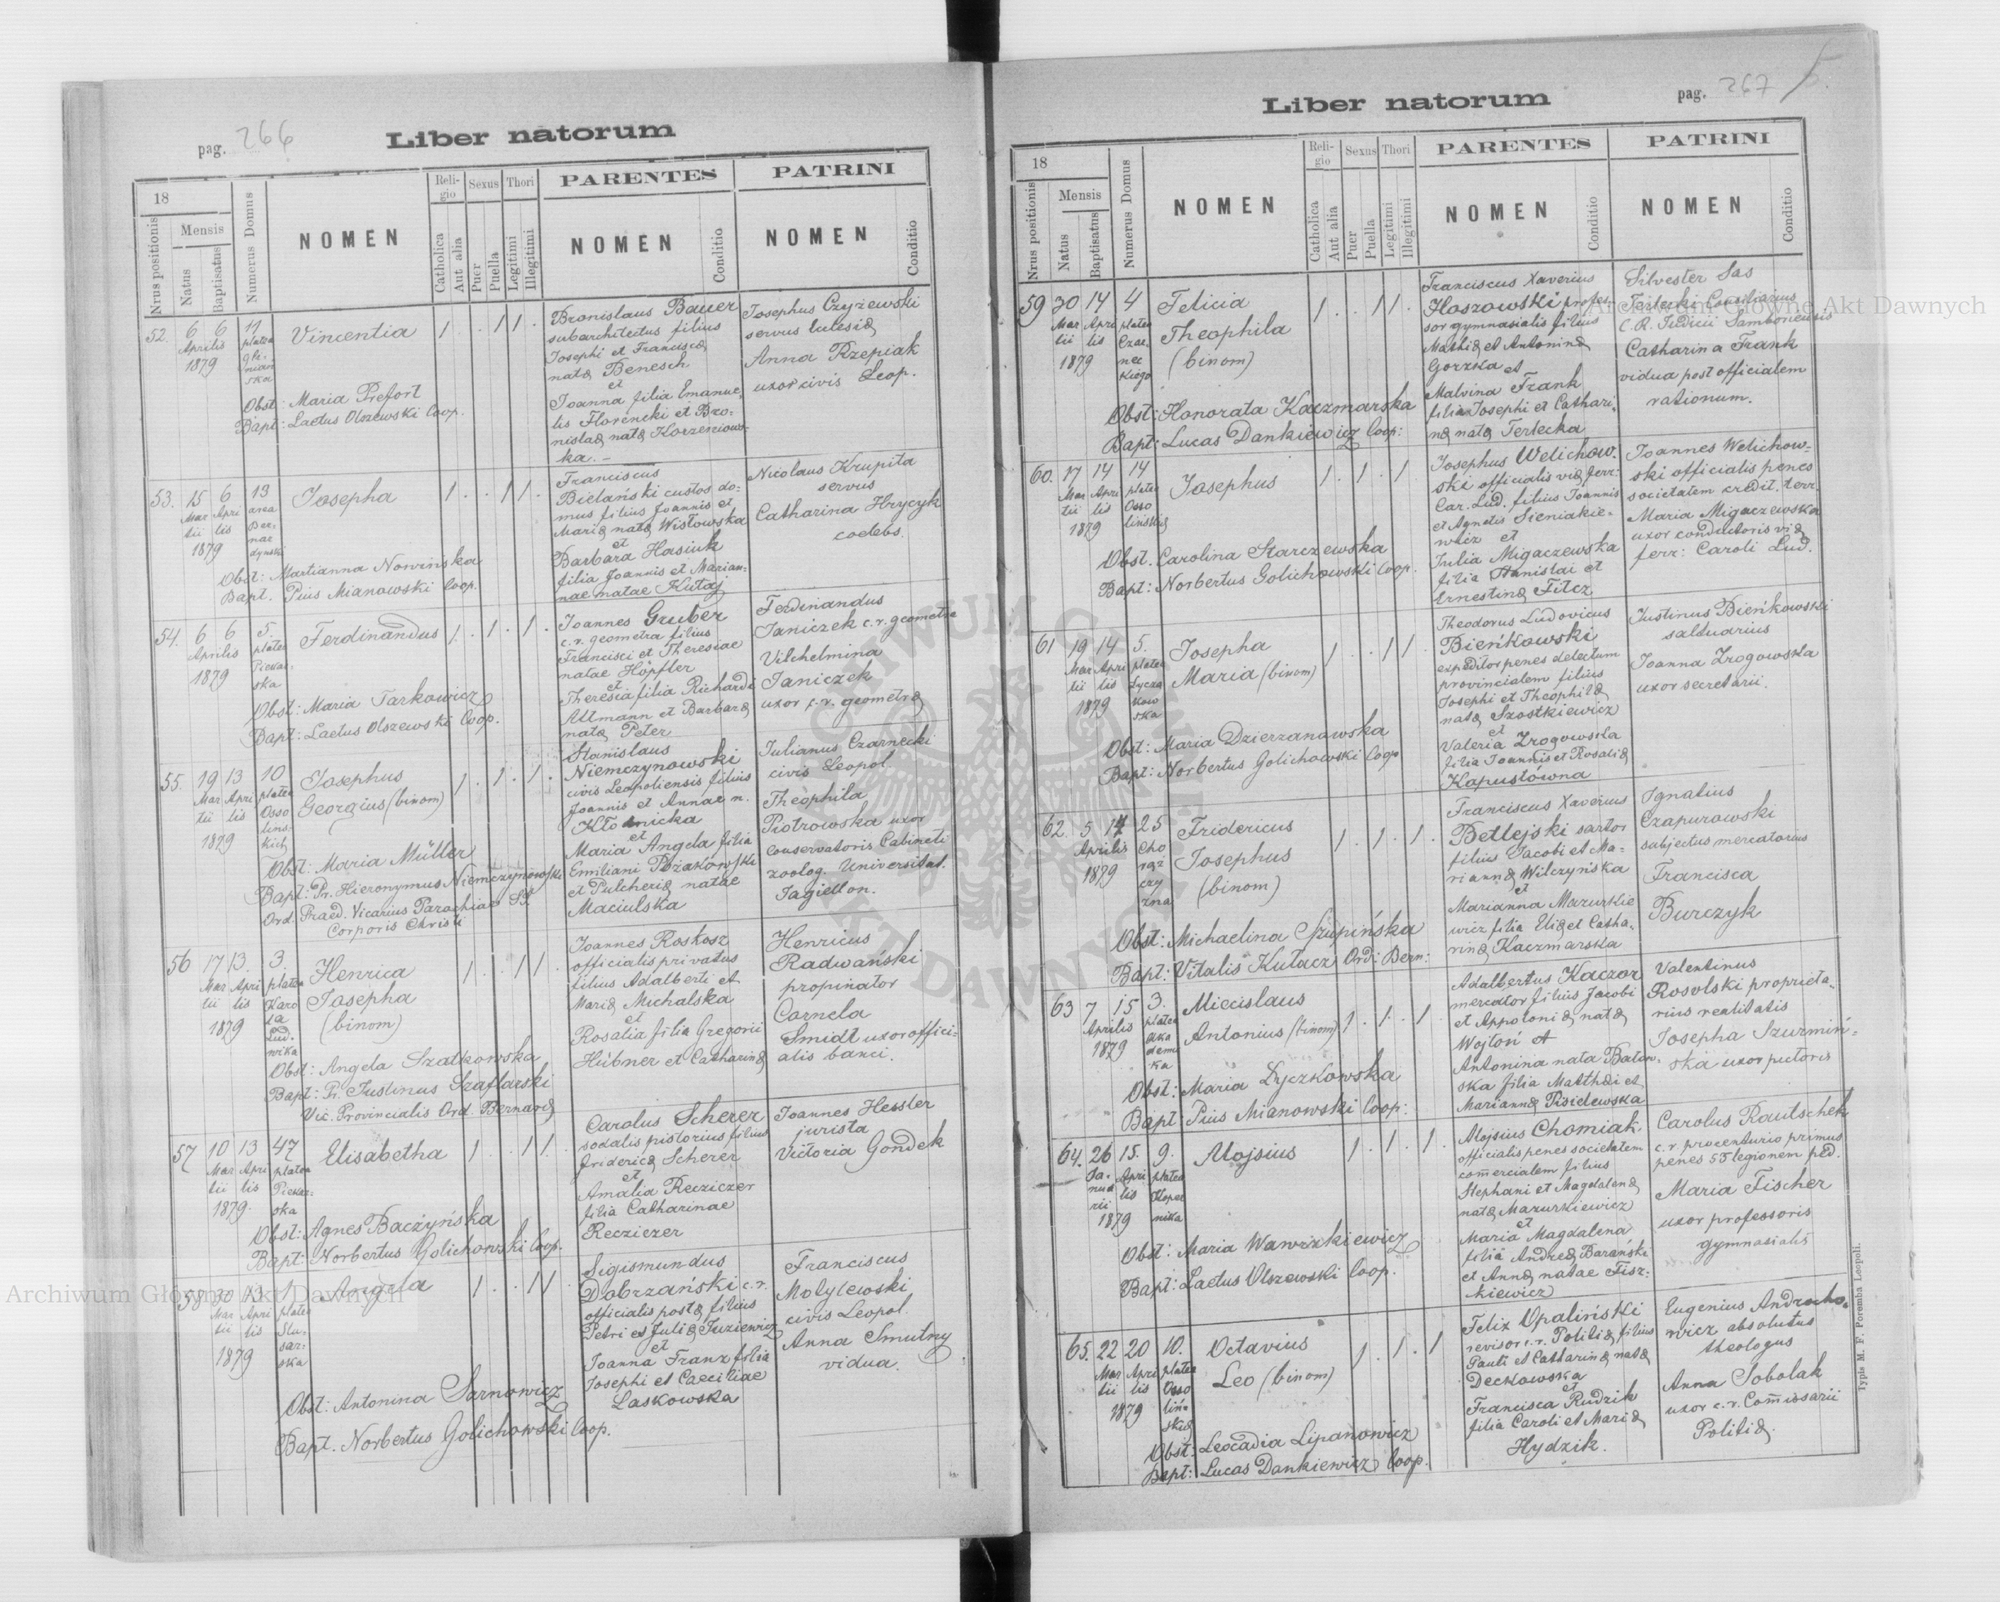 pag. 266
Liber natorum
18
Nrus positionis
Mensis
Natus
Baptisatus
Numerus Domus
NOMEN
Reli-
gio
Catholica
Aut alia
Sexus
Puer
Puella
Thori
Legitimi
Illegitimi
PARENTES
NOMEN
Conditio
PATRINI
NOMEN
Conditio
52. 6 6 11
Aprilis platea
1879 gli-
nian
ska
Vincentia
1 . . 1 1 .
Obst: Maria Prefort
Bapt: Laetus Olszewski Coop.
Bronislaus Bauer
subarchitectus filius
Josephi et Franciscæ
natæ Benesch
et
Joanna filia Emanue-
lis Florencki et Bro-
nislaæ natæ Korzeniow-
ka. –
Josephus Czyżewski
servus
Anna Rzepiak
uxor civis Leop.
53. 25 6 13
Mar Apri area
tii lis Ber-
1879 nar
dynska
Josepha
1 . . 1 1 .
Obst: Martianna Nowińska
Bapt. Pius Mianowski Coop.
Franciscus
Bielański custos do-
mus filius Joannis et
Mariæ natæ Wisłowska
et
Barbara Hasiuk
filia Joannis et Marian-
nae natae Kutaj
Nicolaus Krupita
servus
Catharina Hrycyk
coelebs.
54. 6 6 5
Aprilis platea
1879 Piekar-
ska
Ferdinandus
1 . 1 . 1 .
Obst: Maria Tarkowicz
Bapt: Laetus Olszewski Coop.
Joannes Gruber
c.r. geometra filius
Francisci et Theresiae
natae Höpfler
et
Theresia filia Richardi
Altmann et Barbaræ
natæ Peter
Ferdinandus
Janiczek c.r. geometra
Vilhelmina
Janiczek
uxor c.r. geometræ
55. 19 13 10
Mar Apri platea
tii lis Osso
1879 lins-
kich
Josephus
Georgius (binom)
1 . 1 . 1 .
Obst: Maria Müller
Bapt: Pr. Hieronymus Niemczynowski
Ord. Praed. Vicarius Parochiae SS.
Corporis Christi
Stanislaus
Niemczynowski
civis Leopoliensis filius
Joannis et Annae n.
Kłonicka
et
Maria Angela filia
Emiliani
et Pulcheriæ natae
Maciulska
Julianus Czarnecki
civis Leopol
Theophila
Piotrowska uxor
conservatoris Cabineti
zoolog. Universitat.
Jagiellon.
56 17 13. 3.
Mar Apri platea
tii lis Karo
1879 la
Lud-
wika
Henrica
Josepha
(binom)
1 . . 1 1 .
Obst: Angela Szatkowska
Bapt: Pr. Justinus Szaflarski
Vic. Provincialis Ord. Bernard
Joannes Roskosz
officialis privatus
filius Adalberti et
Mariæ Michalska
et
Rosalia filia Gregorii
Hübner et Catharinæ
Henricus
Radwański
propinator
Cornela
Smidt uxor offici-
alis banci.
57 10 13 47
Mar Apri platea
tii lis Piekar-
1879. ska
Elisabetha
1 . . 1 1 .
Obst: Agnes Baczyńska
Bapt: Norbertus Golichowski Coop.
Carolus Scherer
sodalis pistorius filius
Fridericæ Scherer
et
Amalia Recziczer
filia Catharinae
Recziczer
Joannes Hessler
jurista
Victoria Gondek
58 30 13 1
Mar Apri platea
tii lis Slu-
1879 sar-
ska
Angela
1 . . 1 1
Obst: Antonina Sarnowicz
Bapt. Norbertus Golichowski Coop.
Sigismundus
Dobrzański c.r.
officialis postæ filius
Petri et Juliæ Juziewicz
et
Joanna Franz filia
Josephi et Caeciliae
Laskowska
Franciscus
Motylewski
civis Leopol.
Anna Smutny
vidua.
pag. 267
5.
Liber natorum
18
Nrus positionis
Mensis
Natus
Baptisatus
Numerus Domus
NOMEN
Reli-
gio
Catholica
Aut alia
Sexus
Puer
Puella
Thori
Legitimi
Illegitimi
PARENTES
NOMEN
Conditio
PATRINI
NOMEN
Conditio
59 30 14 4
Mar Apri platea
tii lis Czar-
1879 nec
kiego
Felicia
Theophila
(binom)
1 . . 1 1 .
Obst: Honorata Kaczmarska
Bapt: Lucas Dankiewicz Coop:
Franciscus Xaverius
Hoszowski profes-
sor gymnasialis filius
Mathiæ et Antoninæ
Gorzka et
Malvina Frank
filia Josephi et Cathari-
næ natæ Terlecka
Silvester Sas
Terlecki Consiliarius
C.R. Judicii Samboriensis
Catharina Frank
vidua post officialem
rationum.
60. 17 14 14
Mar Apri platea
tii lis Osso
1879 lińskiæ
Josephus
1 . 1 . 1
Obst. Carolina Starczewska
Bapt: Norbertus Golichowski Coop.
Josephus Welichow-
ski officialis viæ ferr:
Car. Lud. filius Joannis
et Agnetis Sieniakie-
wicz et
Julia Migaczewska
filia Stanislai et
Ernestinæ Filcz
Joannes Welichow-
ski officialis penes
societatem credit. terr.
Maria Migaczewska
uxor conductoris viæ
ferr: Caroli Lud.
61 19 14 5.
Mar Apri platea
tii lis Lycza
1879 kow
ska
Josepha
Maria (binom)
1 . . 1 1 .
Obst: Maria Dzierzanowska
Bapt: Norbertus Golichowski Coop
Theodorus Ludovicus
Bieńkowski
expeditor penes delectum
provincialem filius
Josephi et Theophilæ
natæ Szostkiewicz
et
Valeria Zrogowska
filia Joannis et Rosaliæ
Kapustówna
Justinus Bieńkowski
saltuarius
Joanna Zrogowska
uxor secretarii.
62. 5 14 25
Aprilis Cho
1879 rąż
czy
zna
Fridericus
Josephus
(binom)
1 . 1 . 1 .
Obst: Michaelina Szupińska
Bapt: Vitalis Kułacz Ord: Bern:
Franciscus Xaverius
Betlejski sartor
filius Jacobi et Ma-
riannæ Wilczyńska
et
Marianna Mazurkie
wicz filia Eliæ et Catha-
rinæ Kaczmarska
Ignatius
Czapurowski
subjectus mercatorius
Francisca
Burczyk
63 7 15 3.
Aprilis platea
1879 Aka
demi
ka
Miecislaus
Antonius (binom)
1 . 1 . 1
Obst: Maria Lyczkowska
Bapt Pius Mianowski Coop:
Adalbertus Kaczor
mercator filius Jacobi
et Appoloniæ natæ
Wojtoń et
Antonina nata Baton-
ska filia Matthæi et
Mariannæ
Valentinus
Rosolski proprieta-
rius realitatis
Josepha Szurmiń-
ska uxor pictoris
64. 26 15. 9.
Ja- Apri platea
nua lis Koper
rii nika
1879
Alojsius
1 . 1 . 1 .
Obst: Maria Wawrzkiewicz
Bapt: Laetus Olszewski Coop.
Alojsius Chomiak
officialis penes societatem
comercialem filius
Stephani et Magdalenæ
natæ Mazurkiewicz
et
Maria Magdalena
filia Andreæ Barański
et Annæ natae Fisz-
kiewicz
Carolus Rautschek
c.r. procenturio primus
penes 55 legionem ped.
Maria Fischer
uxor professoris
gymnasialis
65. 22 20 10.
Mar Apri platea
tii lis Osso
1879 liń-
skiæ
Octavius
Leo (binom)
1 . 1 . 1
Obst: Leocadia Lipanowicz
Bapt: Lucas Dankiewicz Coop.
Felix Opaliński
revisor c.r. Politiæ filius
Pauli et Catharinæ natæ
Deckowska
et
Francisca Rudzik
filia Caroli et Mariæ
Hydzik.
Eugenius Androcho-
wicz absolutus
theologus
Anna Sobolak
uxor c.r. Comissarii
Politiæ.
Typis M. F. Poremba Leopoli.
Archiwum Główne Akt Dawnych
Archiwum Główne Akt Dawnych
ARCHIWUM GŁÓWNE AKT DAWNYCH